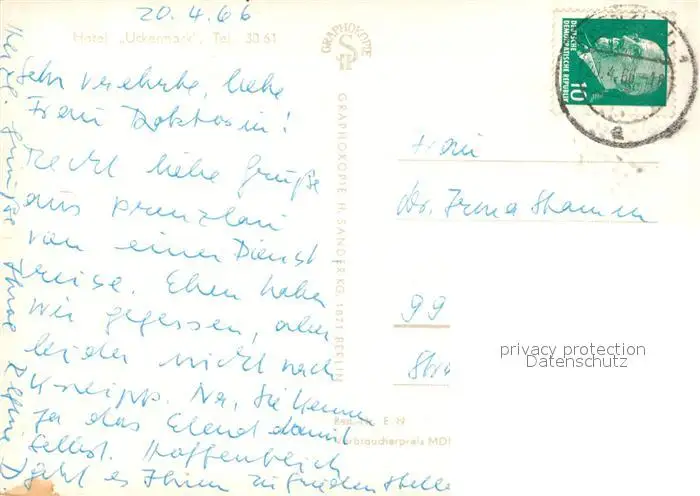 20.4.66
Hotel „Uckermark", Tel. 30 61
Sehr verehrte, liebe
Frau Doktorin!
Recht liebe Grüße
aus Prenzlau
von einer Dienst
reise. Eben haben
wir gegessen, aber
leider nicht nach
Kneipp. Na, Sie kennen
ja das Elend damit
selbst. Hoffentlich
geht es Ihnen zufriedenstelle
Herzl. Grüße Ihre
GRAPHOKOPIE
GRAPHOKOPIE H. SANDER KG, 1871 BERLIN
DEUTSCHE
DEMOKRATISCHE REPUBLIK
10
Frau
Dr. Irena
99
privacy protection
Datenschutz
E 19
Verbraucherpreis MDN